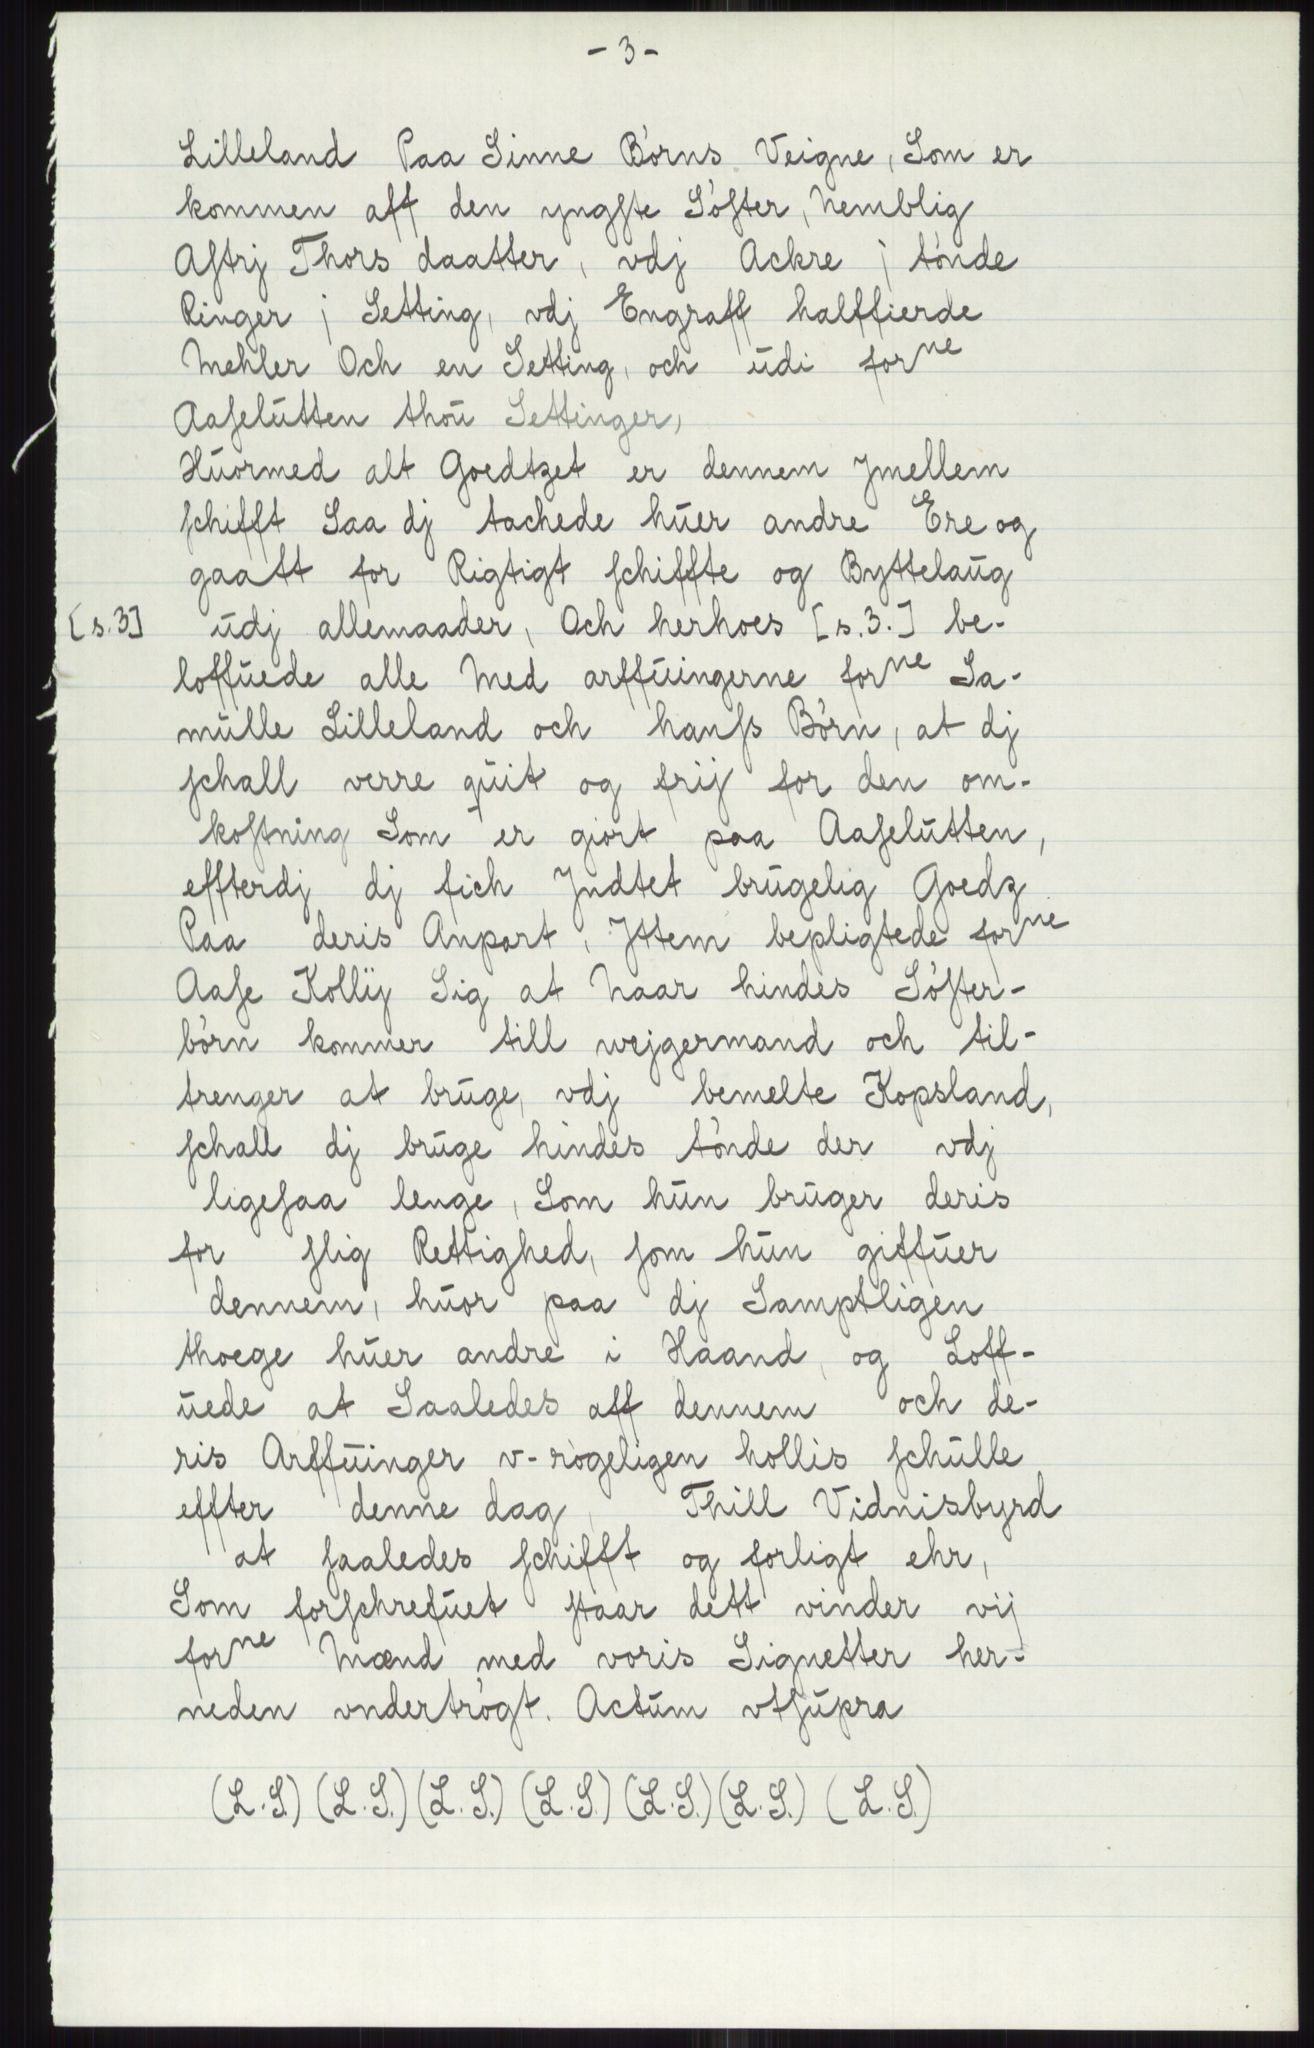 - 3 -
Lilleland Paa Sinne Börns Veigne, Som er
kommen aff den yngste Söster, Nemblig
Astrj Thors daatter, vdj Ackre j tönde
Ringer j Setting, vdj Engraff halffierde
Mehler Och en Setting, och üdi forne
Aaselütten thoü Settinger,
Hüormed alt Goedtzet er dennem Jmellem
schifft Saa dj tachede hüer andre Ere og
gaatt for Rigtigt schiffte og Byttelaüg
[s.3] üdj allemaader, Och herhoes [s.3.] be-
loffüede alle Med arffüingerne forne Sa-
mülle Lilleland och hanss Börn, at dj
schall verre qüit og frij for den om-
kostning Som er giort paa Aaselütten,
effterdj dj fich Jndtet brügelig Goedz
Paa deris Anpart, Jttem bepligtede forne
Aase Kollij Sig at Naar hindes Söster-
börn kommer till wejgermand och til-
trenger at brüge, vdj bemelte Kopsland,
schall dj brüge hindes tönde der vdj
ligesaa lenge, Som hün brüger deris
for slig Rettighed, som hün giffüer
dennem, hüor paa dj Samptligen
thoege hüer andre i Haand, og Loff-
üede at Saaledes aff dennem och de-
ris Arffüinger v-rögeligen hollis schülle
effter denne dag, Thill Vidnisbyrd
at saaledes schifft og forligt ehr,
Som forschrefüet staar dett vinder vij
forne Mænd med voris Signetter her-
neden vndertrögt. Actüm vtsüpra
(L.S.) (L.S.) (L.S.) (L.S.) (L.S.) (L.S.) (L.S.)